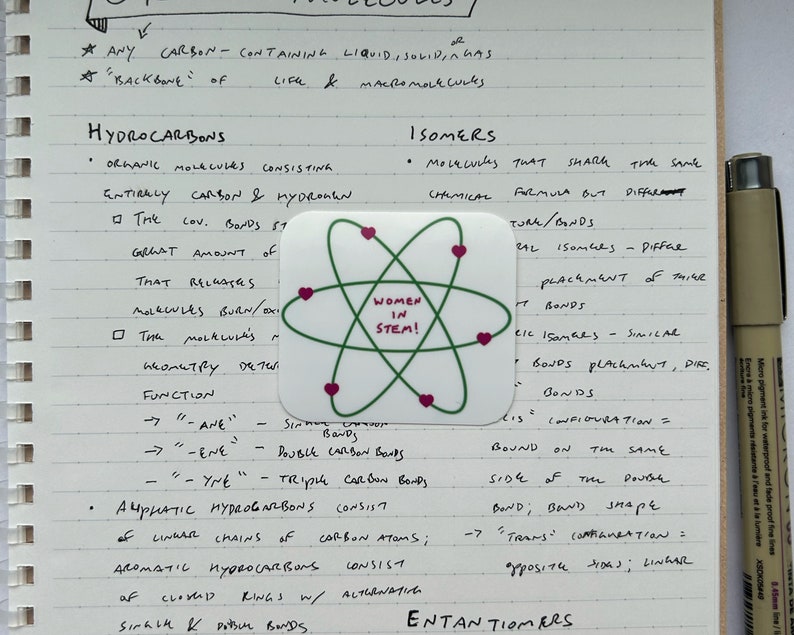 MOLECULES
☆ ANY CARBON-CONTAINING LIQUID, SOLID, OR GAS
☆ "BACKBONE" OF LIFE & MACROMOLECULES
HYDROCARBONS
• ORGANIC MOLECULES CONSISTING
ENTIRELY CARBON & HYDROGEN
□ THE COV. BONDS
GREAT AMOUNT OF
THAT RELEASES
MOLECULES BURN/
□ THE MOLECULE'S
GEOMETRY
FUNCTION
→ "-ANE" - SINGLE CARBON
BONDS
→ "-ENE" - DOUBLE CARBON BONDS
- "-YNE" - TRIPLE CARBON BONDS
• ALIPHATIC HYDROCARBONS CONSIST
OF LINEAR CHAINS OF CARBON ATOMS;
AROMATIC HYDROCARBONS CONSIST
OF CLOSED RINGS W/ ALTERNATING
SINGLE & DOUBLE BONDS
ISOMERS
• MOLECULES THAT SHARE THE SAME
CHEMICAL FORMULA BUT DIFFER
/BONDS
ISOMERS - DIFFER
PLACEMENT OF THEIR
BONDS
ISOMERS - SIMILAR
BONDS PLACEMENT, DIFF.
BONDS
CONFIGURATION =
BOUND ON THE SAME
SIDE OF THE DOUBLE
BOND; BEND SHAPE
→ "TRANS" CONFIGURATION =
OPPOSITE SIDES; LINEAR
ENTANTIOMERS
WOMEN
IN
STEM!
Micro pigment ink for waterproof and fade proof fine lines
Encre à micro pigments résistante à l'eau et à la lumière
XSDK05#49
0.45mm line